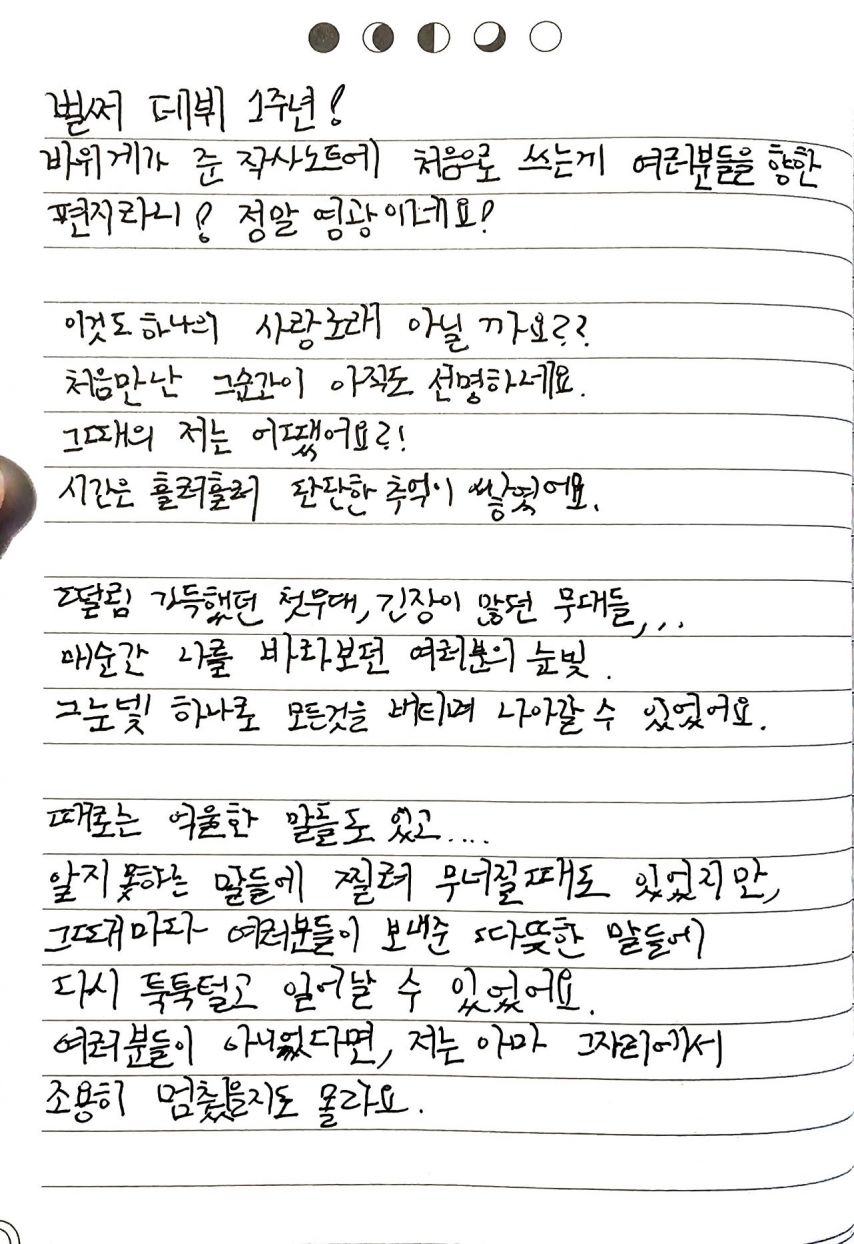 벌써 데뷔 1주년!
바위게가 준 작사노트에 처음으로 쓰는게 여러분들을 향한
편지라니! 정말 영광이네요!
이것도 하나의 사랑노래 아닐까요??
처음만난 그순간이 아직도 선명하네요.
그때의 저는 어땠어요?!
시간은 흘러흘러 단단한 추억이 쌓였어요.
떨림 가득했던 첫무대, 긴장이 많던 무대들,...
매순간 나를 바라보던 여러분의 눈빛.
그눈빛 하나로 모든것을 버티며 나아갈 수 있었어요.
때로는 억울한 말들도 있고....
알지 못하는 말들에 찔려 무너질때도 있었지만,
그때마다 여러분들이 보내준 따뜻한 말들에
다시 툭툭털고 일어날 수 있었어요.
여러분들이 아니었다면, 저는 아마 그자리에서
조용히 멈췄을지도 몰라요.